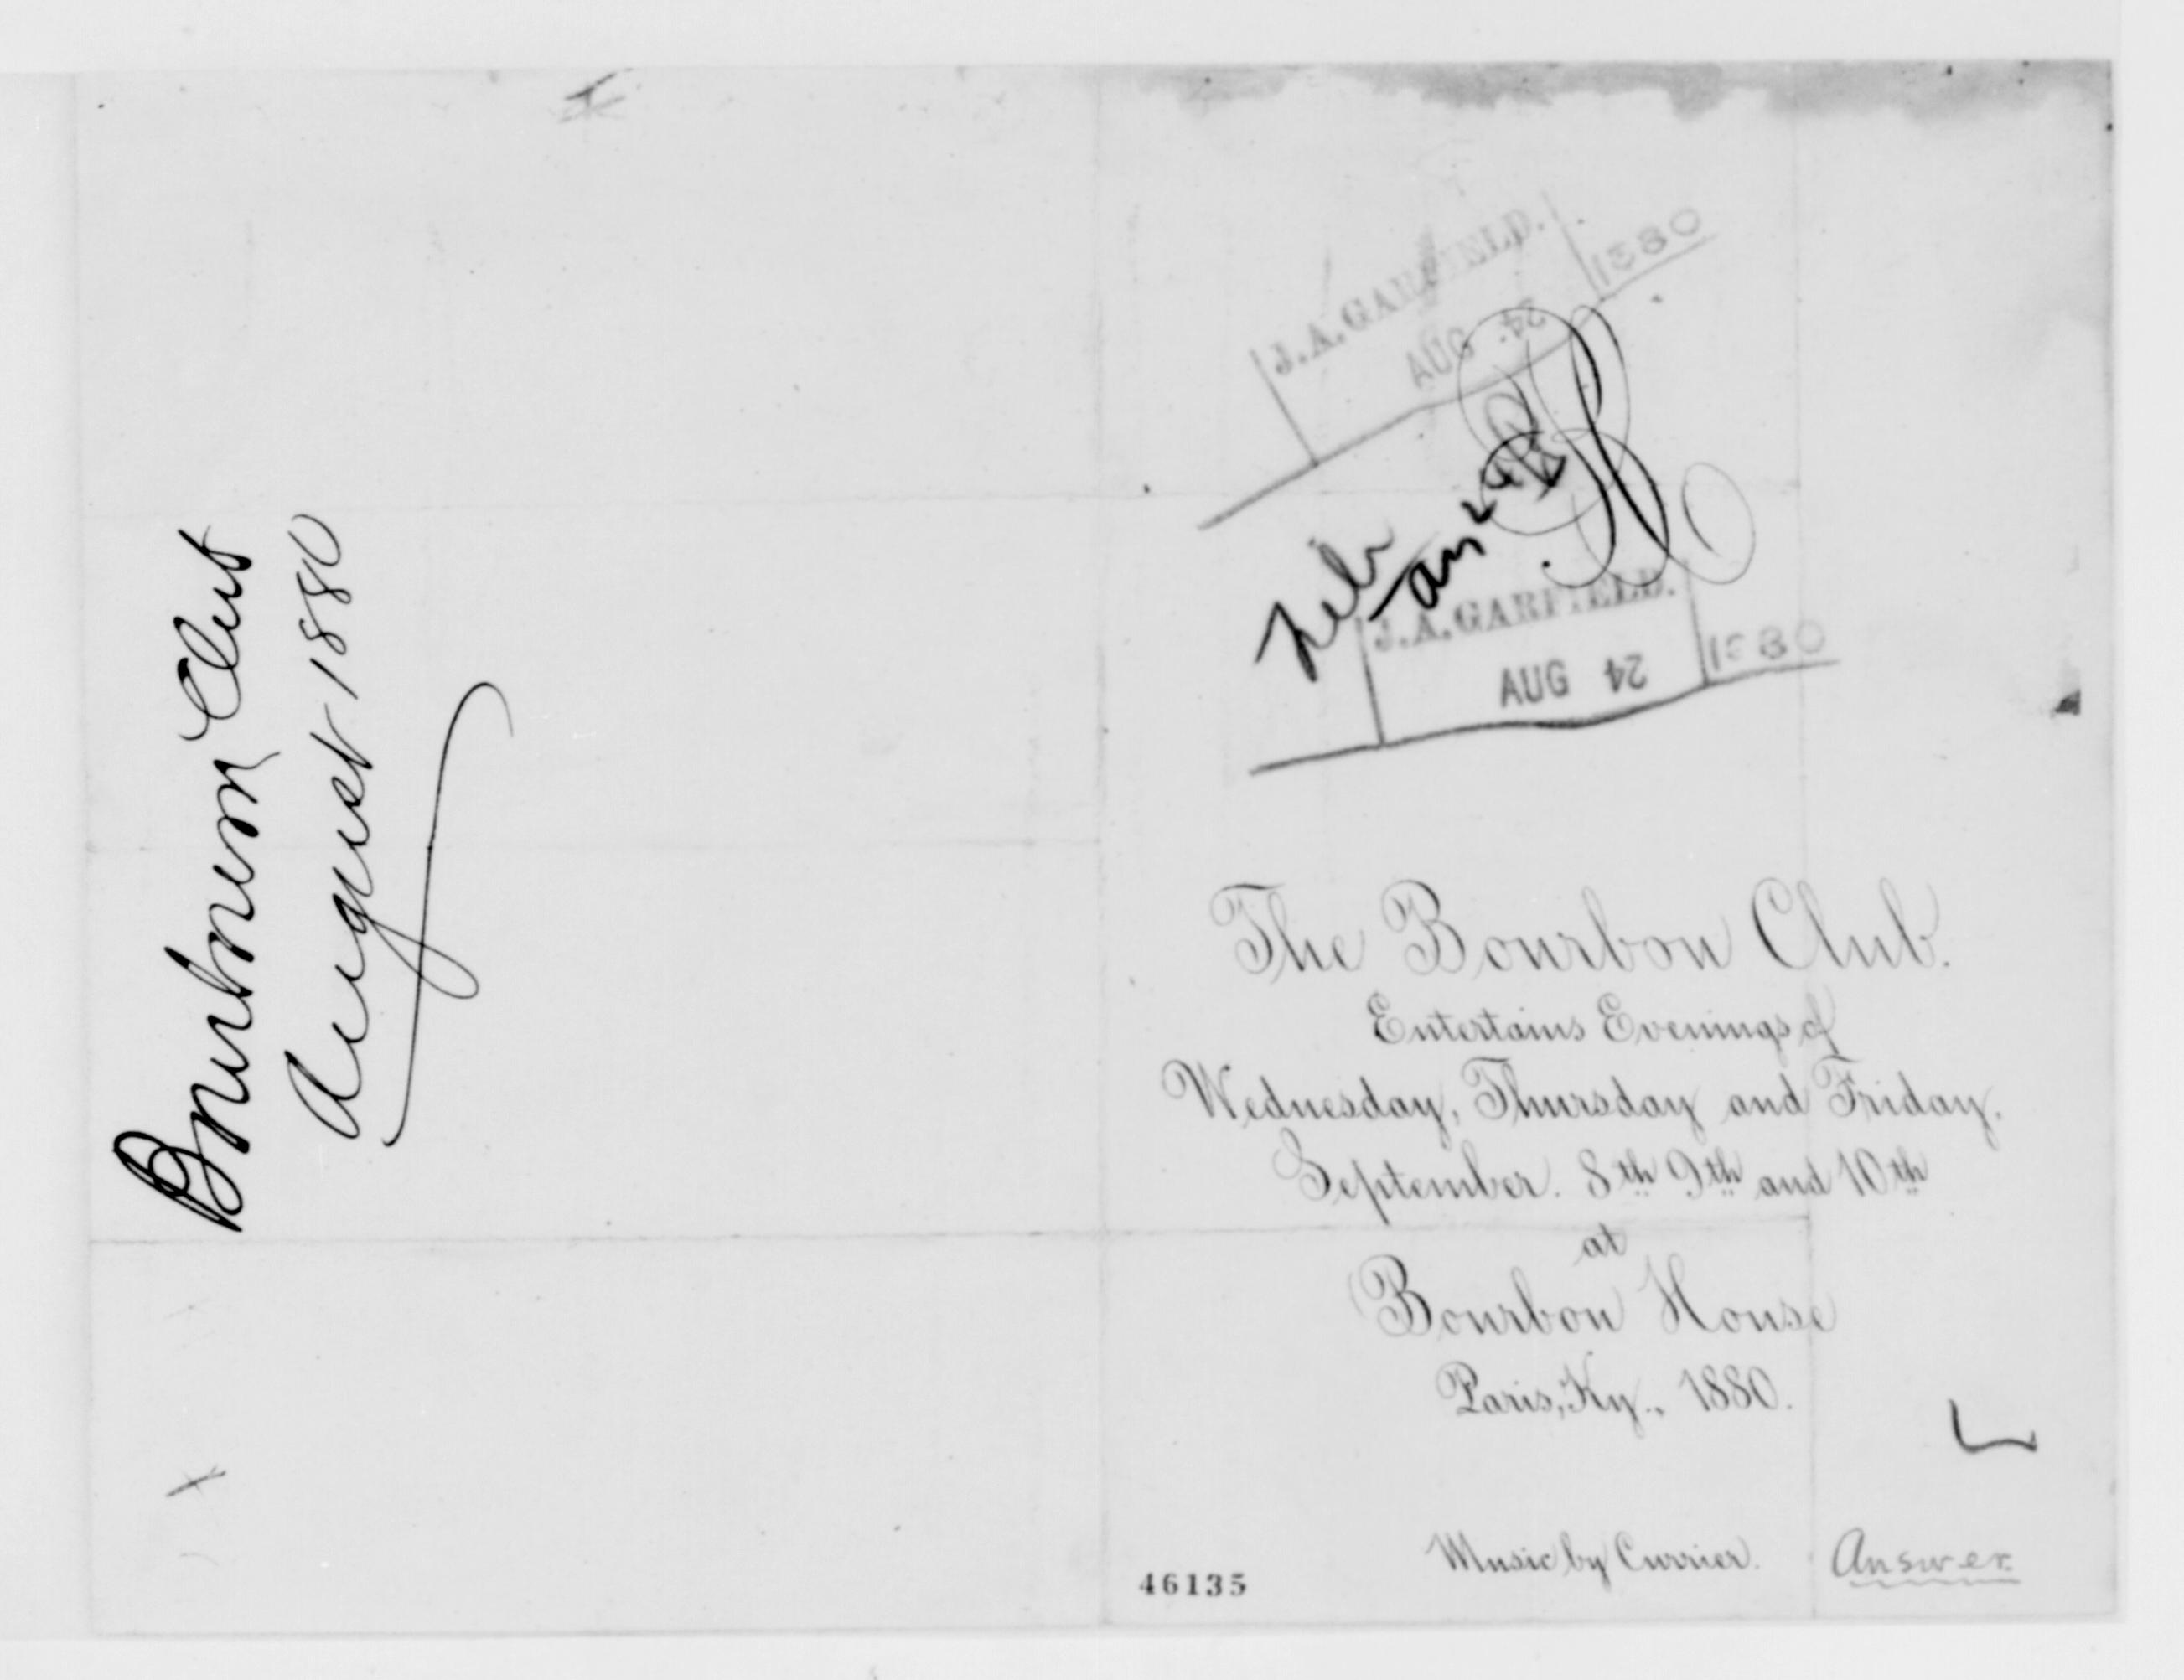 Bourbon Club
August 1880
J.A. GARFIELD.
AUG 24 1880
ans
J.A. GARFIELD.
AUG 24 1880
The Bourbon Club.
Entertains Evenings of
Wednesday, Thursday and Friday.
September. 8th 9th and 10th
at
Bourbon House
Paris, Ky., 1880.
Music by Currier.
Answer.
46135